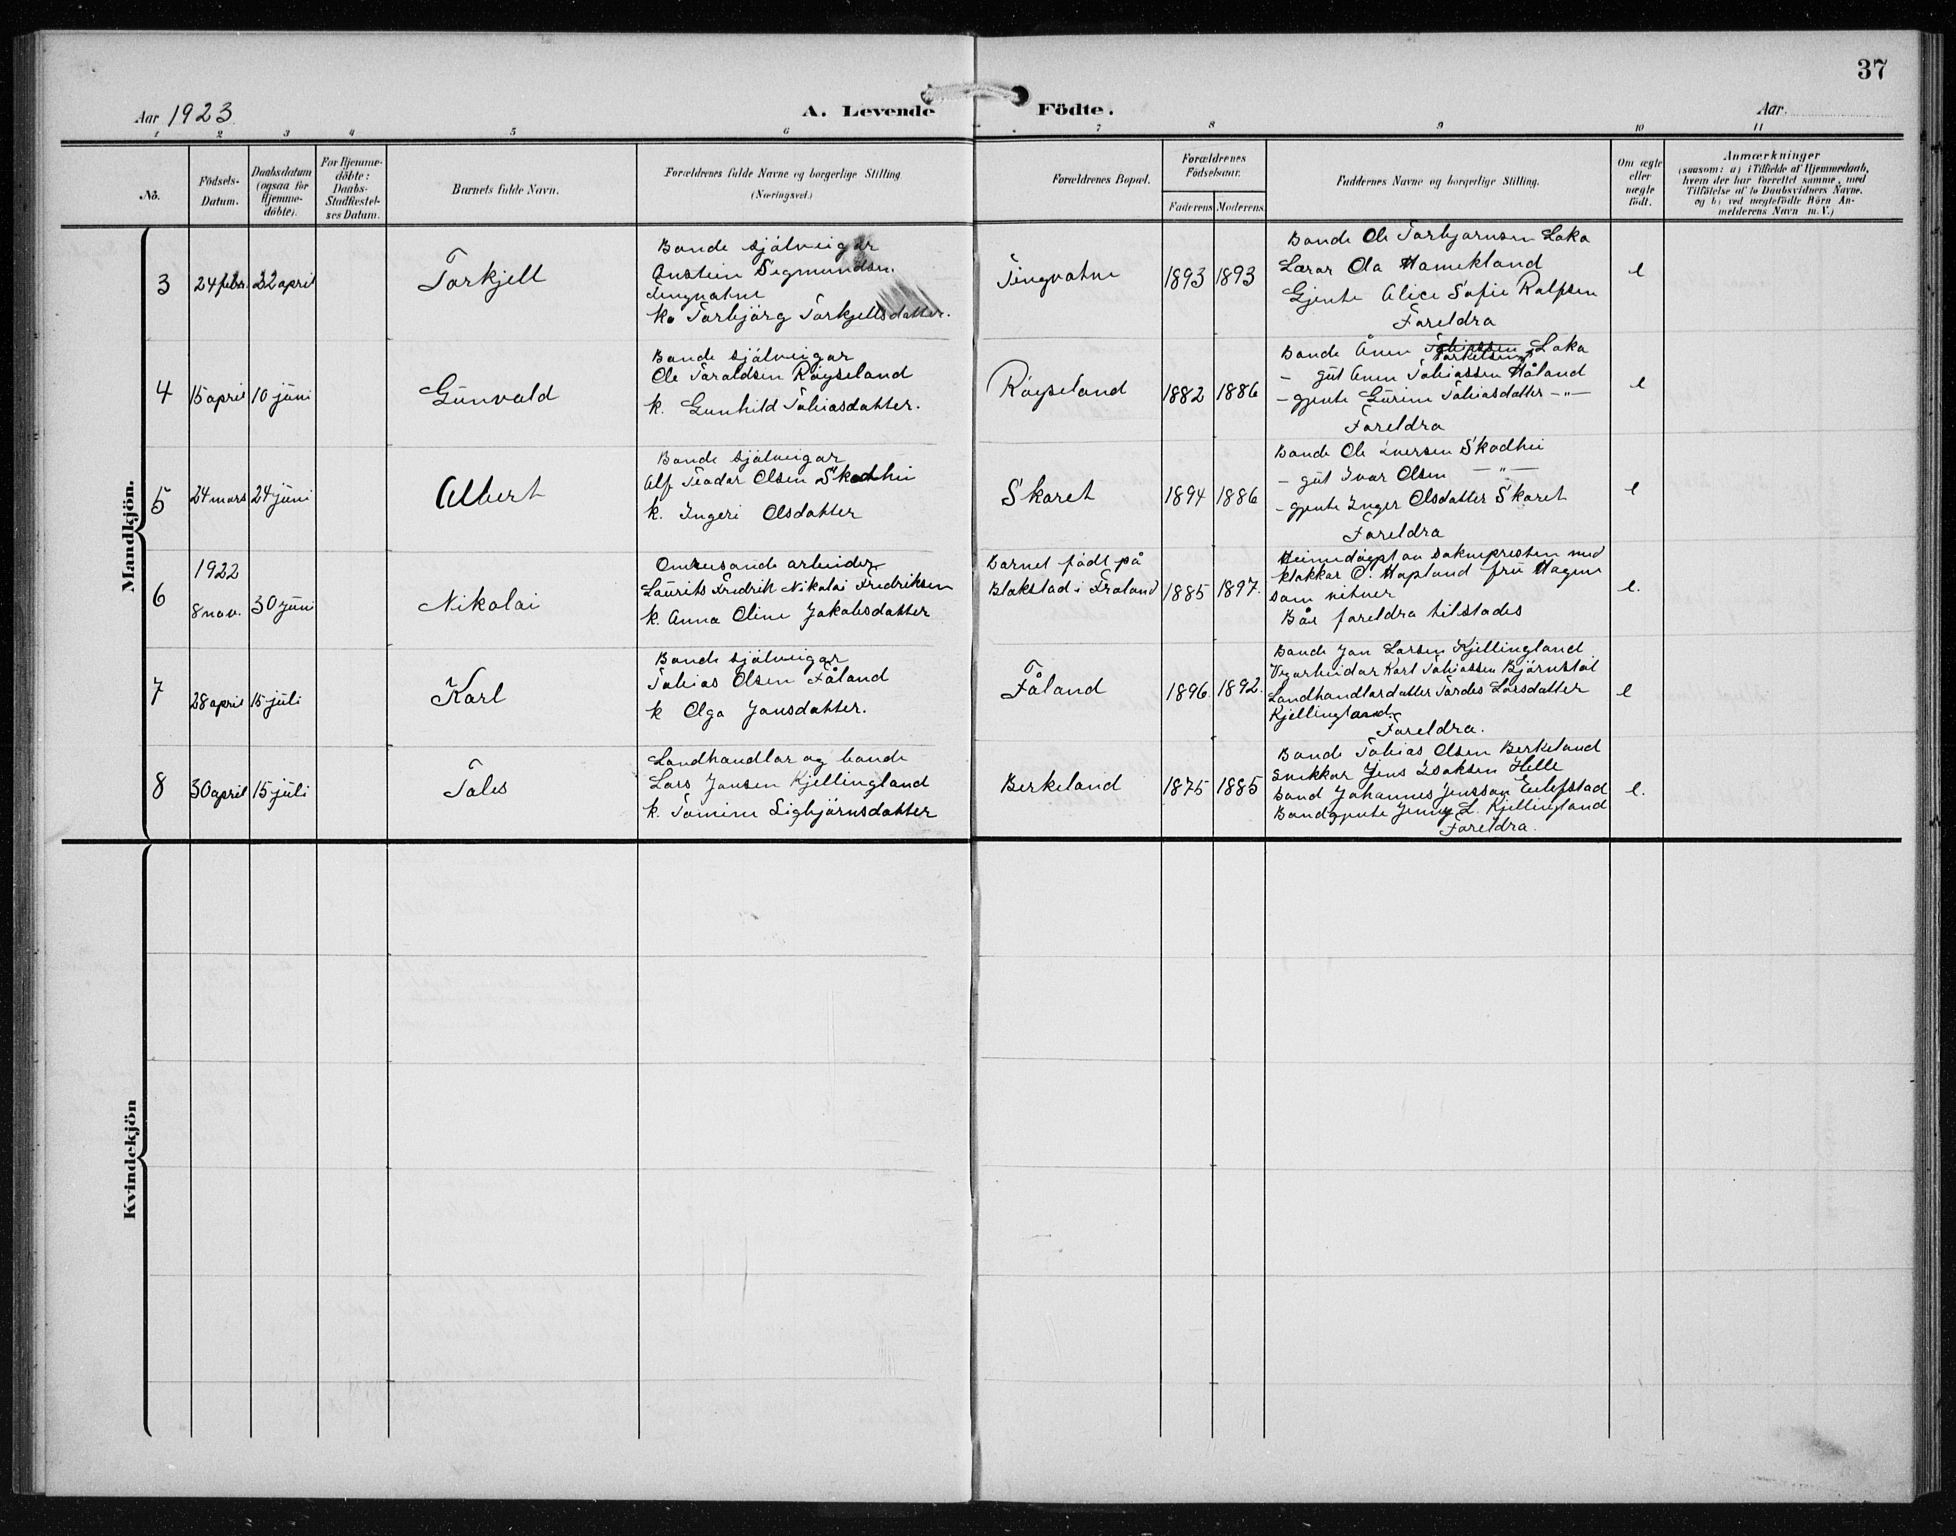 37
Aar 1923.
A. Levende
Födte.
Aar
1 2 3 4 5 6 7 8 9 10 11
No.
Födsels-
Datum.
Daabsdatum
(ogsaa for
Hjemme-
döbte).
For Hjemme-
döbte:
Daabs-
Stadfæstel-
ses Datum.
Barnets fulde Navn.
Forældrenes fulde Navne og borgerlige Stilling
(Næringsvei.)
Forældrenes Bopæl.
Forældrenes
Födselsaar.
Faderens Moderens
Faddernes Navne og borgerlige Stilling.
Om ægte
eller
uægte
födt.
Anmærkninger
(saasom: a) i Tilfælde af Hjemmedaab,
hvem der har forrettet samme, med
Tilföielse af to Daabsvidners Navne.
og b) ved uægtefödte Börn An-
melderens Navn m. V.)
Mandkjön.
3
24 febr.
22 april
Torkjell
Bonde sjölveigar
Anstein Sigmundsen
Tingvatne
ko Torbjörg Torkjellsdatter.
Tingvatne
1893
1893
Bonde Ole Torbjornsen Loka
Lærar Ola Hamekland
Gjente Alice Sofie Rolfsen
Foreldra
e
4
15 april
10 juni
Gunvald
Bonde sjölveigar
Ole Taraldsen Röyseland
k. Gunhild Tobiasdatter.
Röyseland
1882
1886
Bonde Ånen Tobiassen Loka
Torkelsen
- gut Anen Tobiassen Håland
- gjente Gurine Tobiasdatter -"-
Foreldra
e
5
24 mars
24 juni
Albert
Bonde sjölveigar
Alf Teodor Olsen Skodhei
k. Ingeri Olsdatter
Skaret
1894
1886
Bonde Ole Iversen Skodhei
- gut Ivar Olsen -"-
- gjente Inger Olsdatter Skaret
Foreldra
e
6
1922
8 nov.
30 juni
Nikolai
Omreisande arbeider
Laurits Fredrik Nikolai Fredriksen
k. Anna Oline Jakobsdatter
Barnet födt på
Blakstad i Froland
1885
1897.
Heimedöypt av soknepresten med
klokkar O. Hapland fru Hagen
som vitner
Båe foreldra tilstades
e.
7
28 april
15 juli
Karl
Bonde sjölveigar
Tobias Olsen Fåland
k Olga Jansdatter.
Fåland
1896.
1892.
Bonde Jan Larsen Kjellingland
Vegarbeidar Karl Tobiassen Björnstöl
Landhandlardatter Tordis Larsdatter
Kjellingland.
Foreldra.
e
8
30 april
15 juli
Tales
Landhandlar og bonde
Lars Jansen Kjellingland
k. Tomine Sigbjörnsdatter
Berkeland
1875
1885
Bonde Tobias Olsen Berkeland
Snekkar Jens Isaksen Helle
Bond Johannes Jensson Eilefstad
Bondgjente Jenny L. Kjellingland
Foreldra.
e.
Kvindekjön